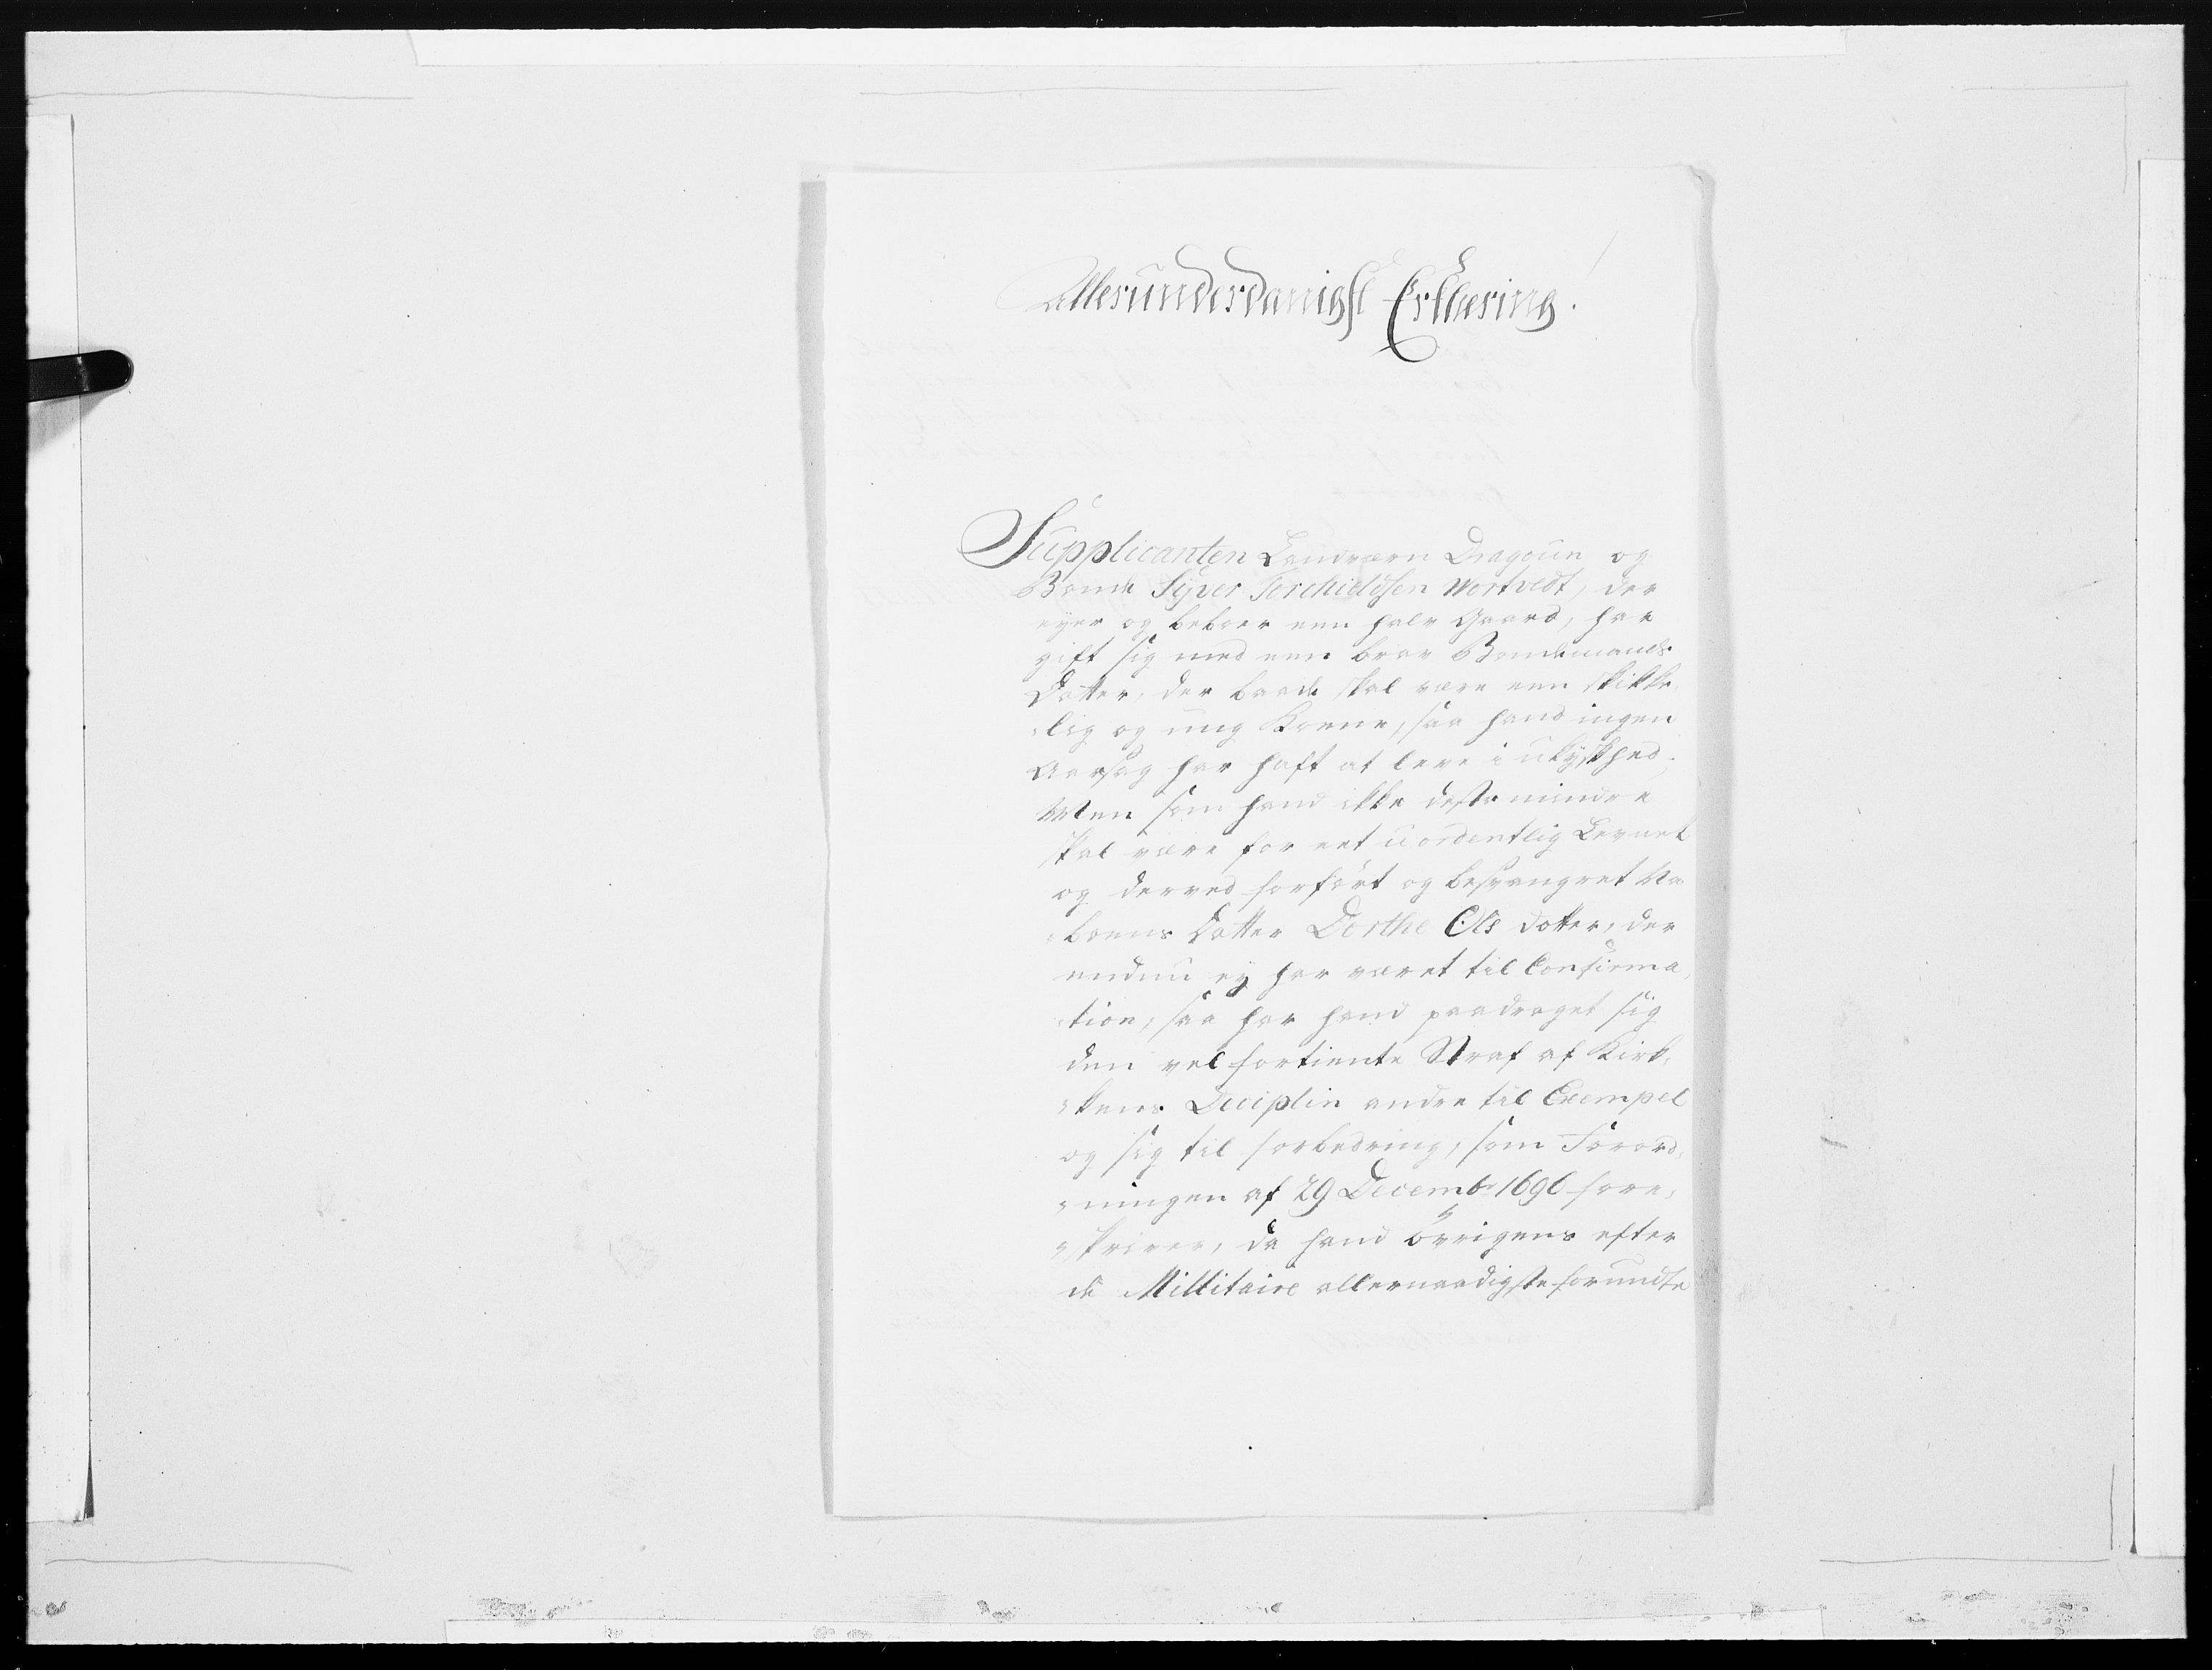 Allerunderdanigst Erklæring.
Supplicanten Landværn Dragoun og
Bonde Syver Torchieldsen Mortvedt, der
eyer og beboer een halv Gaard, har
gift sig med een brav Bondemands
Datter, der baade skal være een skikke„
„lig og ung Koene, saa hand ingen
Aarsag har haft at leve i ukyskhed;
Men som hand ikke desto mindre
skal være for eet uordentlig Levnet
og derved forført og besvangret Na„
„boens Datter Dorthe Ols dotter, der
endnu ey har været til Confirma„
„tion, saa har hand paadraget sig
den vel fortiente Straf af Kirk„
„kens Deciplin andre til Exempel
og sig til forbedring, som Forord„
„ningen af 29 Decembr 1696 fore„
„skriver, da hand øvrigens efter
de Millitaire allernaadigste forundte